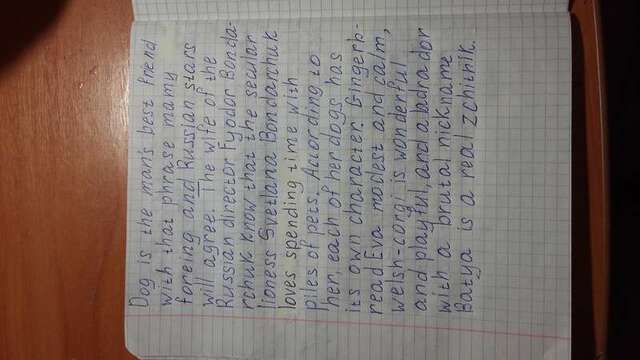 Dog is the man's best friend
with that phrase mamy
foreing and Russian stars
will agree. The wife of the
Russian director Fyodor Bonda-
rchuk know that the secular
lioness Svetlana Bondarchuk
loves spending time with
piles of pets. According to
her, each of her dogs has
its own character. Gingerb-
read Eva modest and calm,
welsh-corgi is wonderful
and playful, and a labrador
with a brutal nickname
Batya is a real zchitnik.